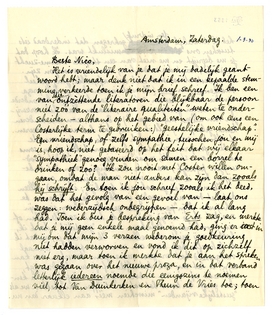 Amsterdam, Zaterdag. 1-9-'
Beste Nico,
Het is vriendelijk van je dat je mij dadelijk geant-
woord hebt; maar denk niet dat ik in een bepaalde stem-
ming verkeerde toen ik je mijn brief schreef. Ik ben een
van de literatoren die blijkbaar de persoon
niet zoo van de "literaire qualiteiten" weten te onder-
scheiden — althans op het gebied van (om ook eens een
Costerlijke term te gebruiken:) "geestelijke vriendschap".
En vriendschap, of zelfs sympathie, tusschen jou en mij
is, hoop ik, niet gebaseerd op het feit dat wij elkaar
sympathiek genoeg vinden om samen een borrel te
drinken of zoo? Ik zou nooit met Coster willen om-
gaan, omdat de man niet anders kan zijn dan zooals
hij schrijft. En toen ik jou schreef zooals ik het deed,
was dat het gevolg van een gevoel van — laat ons
zeggen: verdrietige onbegrepen — dat ik al lang
had. Toen ik dus je bespreking van Erts zag, en merkte
dat je mij geen enkele maal genoemd had, ging er
mij om dat mijn 3 verzen wederom je goedkeuring
niet hadden verworven en vond ik dit op zichzelf
niet erg; maar toen ik merkte dat je aan het
was gegaan over het nieuwe proza, en in dat verband
letterlijk iedereen noemde die eenigszins te noemen
viel, tot Van Duinkerken en Theun de Vries toe, toen